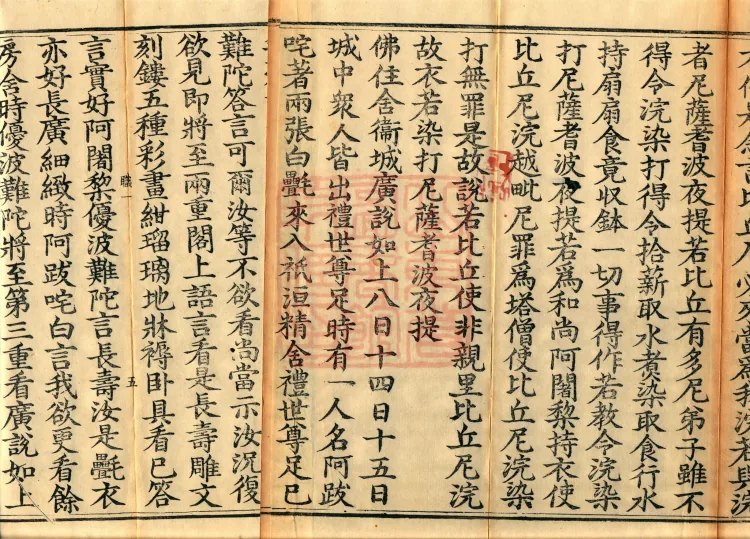 者尼薩耆波夜提若比丘有多尼弟子雖不
得令浣染打得令拾薪取水煮染取食行水
持扇扇食竟收鉢一切事得作若教令浣染
打尼薩耆波夜提若爲和尚阿闍黎持衣使
比丘尼浣越毗尼罪爲塔僧使比丘尼浣染
打無罪是故說若比丘使非親里比丘尼浣
故衣若染打尼薩耆波夜提
佛住舍衞城廣說如上八日十四日十五日
城中衆人皆出禮世尊足時有一人名阿跋
咤著兩張白㲲來入祇洹精舍禮世尊足已
難陀答言可爾汝等不欲看尚當示汝況復
欲見即將至兩重閣上語言看是長壽雕文
刻鏤五種彩畫紺瑠璃地牀褥卧具看已答
職一 五
言實好阿闍黎優波難陀言長壽汝是㲲衣
亦好長廣細緻時阿跋咤白言我欲更看餘
房舍時優波難陀將至第三重看廣說如上